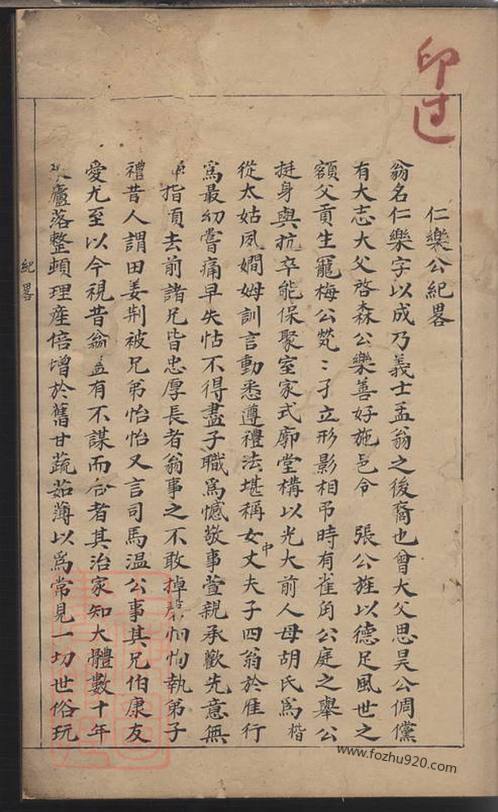 印过
仁樂公紀畧
翁名仁樂字以成乃義士孟翁之後裔也曾大父思昊公倜儻
有大志大父啓森公樂善好施邑令 張公旌以德足風世之
額父貢生寵梅公煢〻孑立形影相弔時有雀角公庭之舉公
挺身與抗卒能保聚室家式廓堂構以光大前人母胡氏爲楷
從太姑夙嫺姆訓言動悉遵禮法堪稱女中丈夫子四翁於雁行
爲最幼嘗痛早失怙不得盡子職爲憾敬事萱親承歡先意無
指頂去前諸兄皆忠厚長者翁事之不敢掉 恂恂執弟子
禮昔人謂田姜荆被兄弟怡怡又言司馬温公事其兄伯康友
愛尤至以今視昔翁蓋有不謀而合者其治家知大體數十年
廬落整頓理産倍增於舊甘蔬茹薄以爲常見一切世俗玩
紀畧
www.fozhu920.com